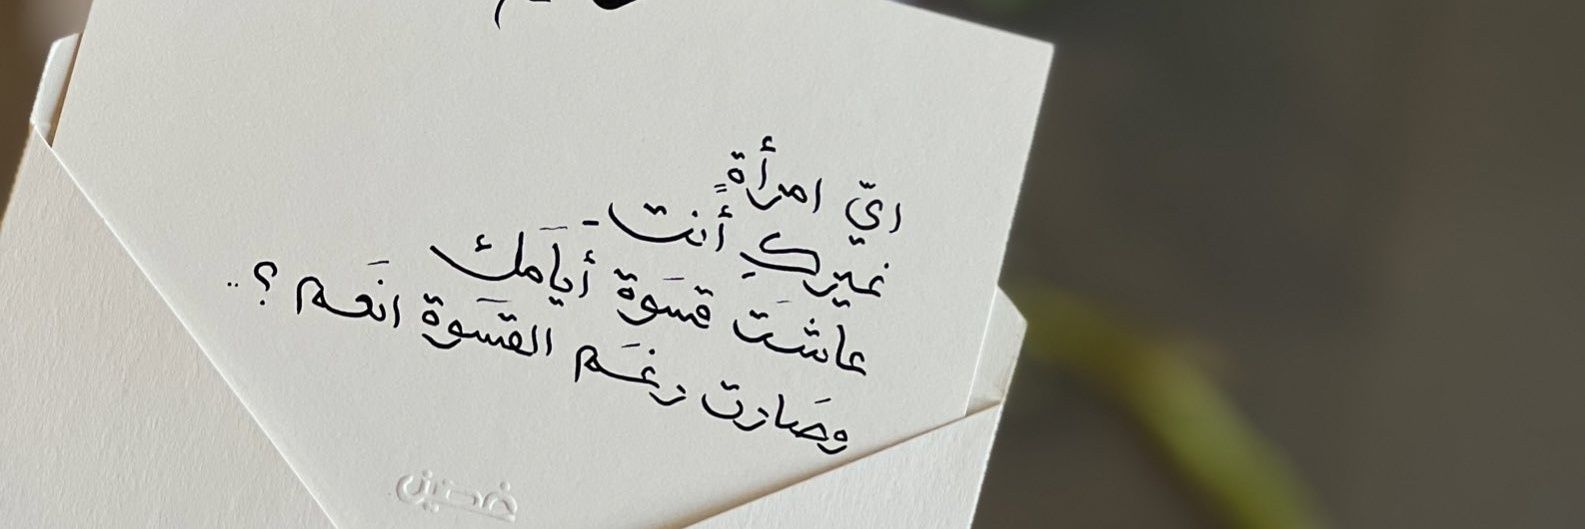 ايّ امرأةٍ
غيركِ أنت-
عاشَت قسَوة أيَامك
وصَارت رغَم القسَوة انَعم ؟..